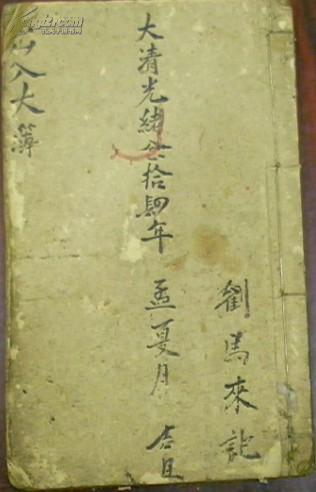 劉馬來記
大清光緒拾肆年 孟夏月 吉旦
出入大簿